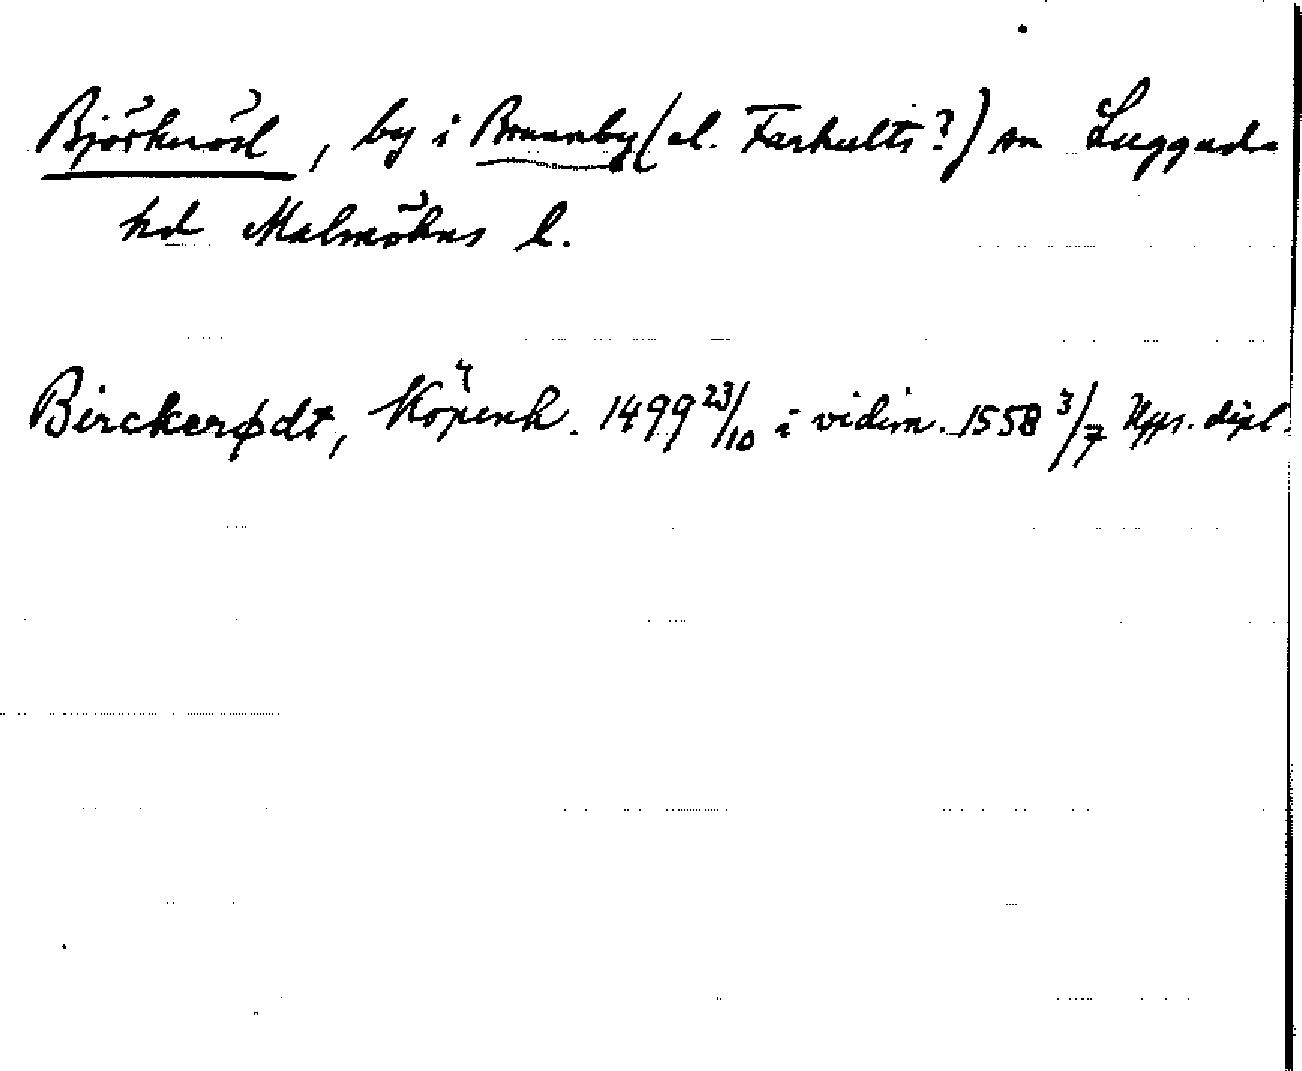 Björkeröd, by i Brunnby (el. Farhults?) sn Luggude
hd Malmöhus l.
Birckerødt, Köpenh. 1499 23/10 i vidim. 1558 3/7 Upps. dipl.